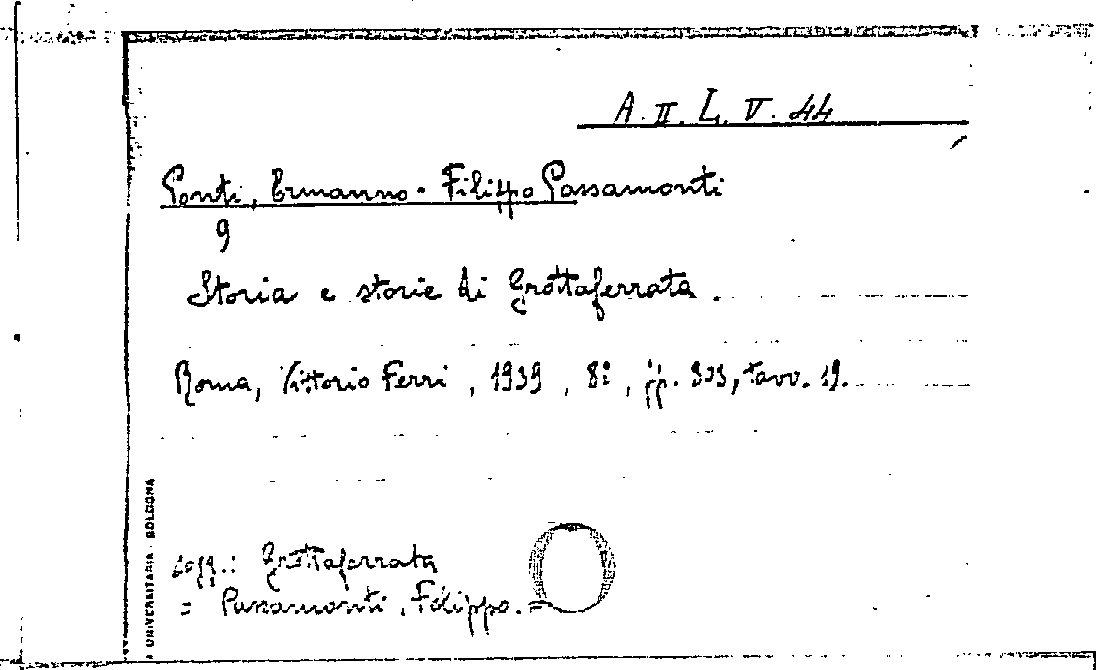 A. II. L. V. 44
Ponti, Ermanno - Filippo Passamonti
9
Storia e storie di Grottaferrata.
Roma, Vittorio Ferri, 1939, 8º, pp. 303, tavv. 19.
sogg.: Grottaferrata
= Passamonti, Filippo. =
UNIVERSITARIA - BOLOGNA